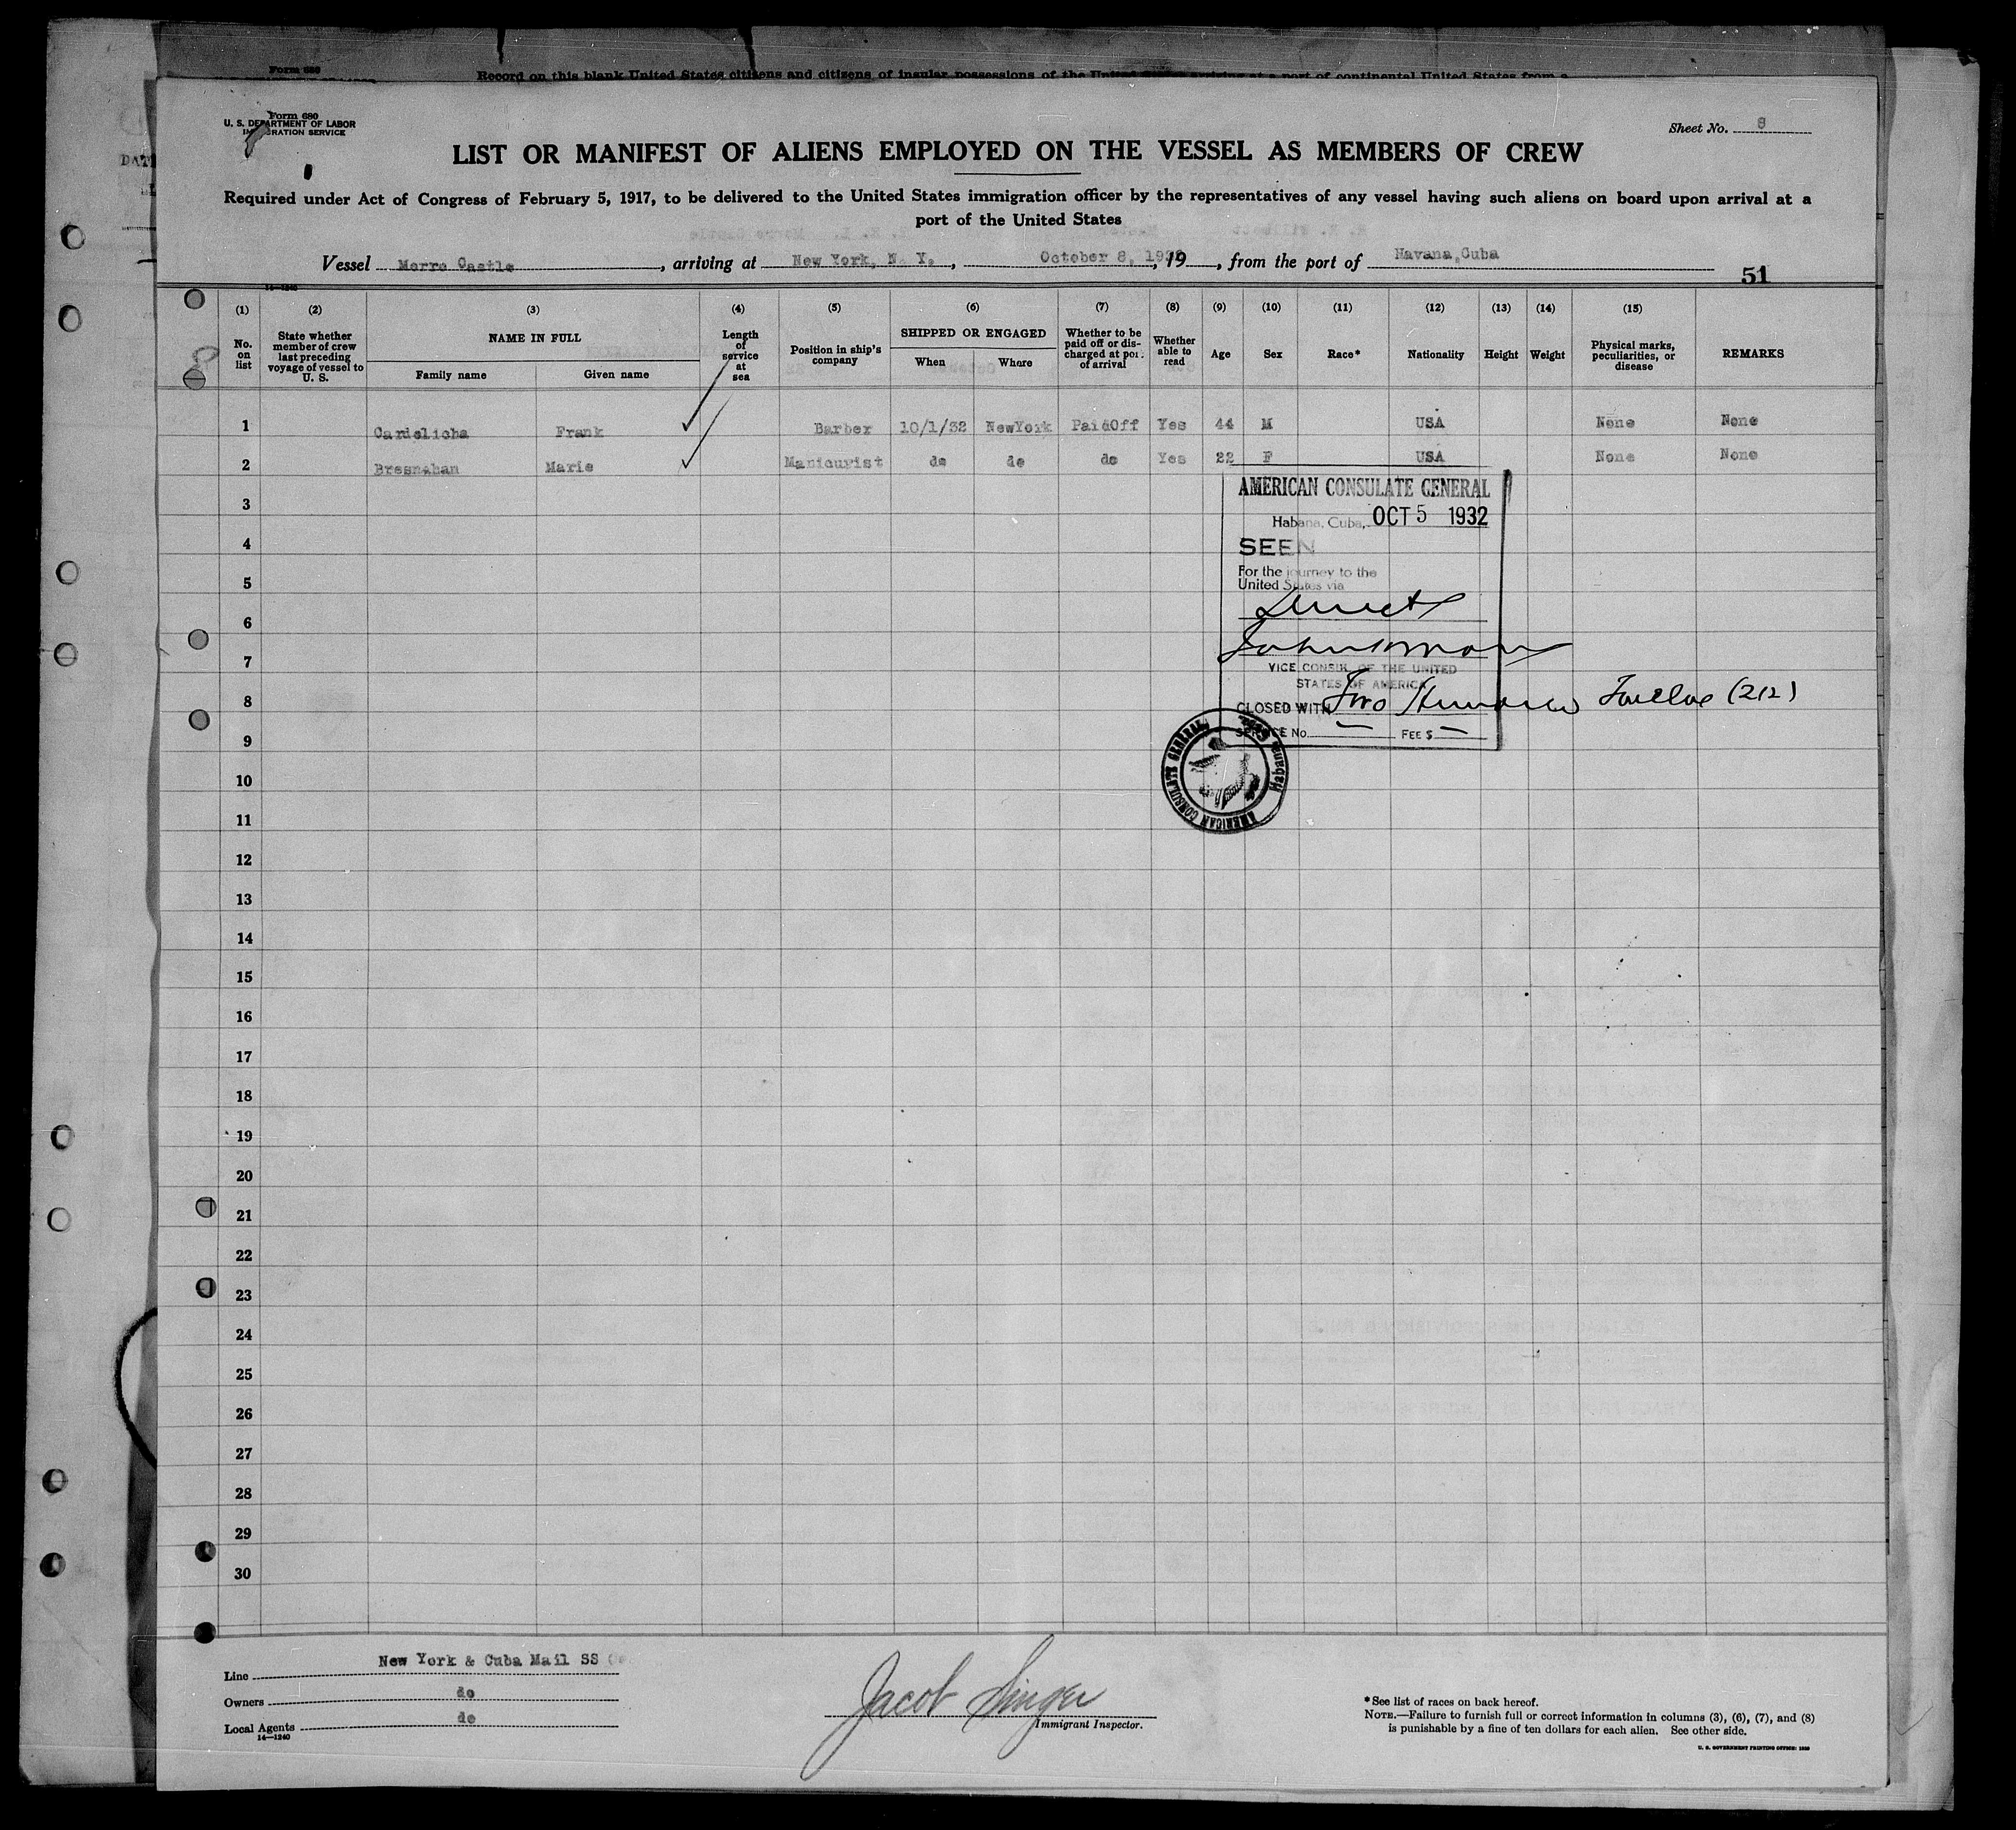 Form 680
Record on this blank United States citizens and citizens of insular possessions of the United States arriving at a port of continental United States from a
Form 680
U. S. DEPARTMENT OF LABOR
IMMIGRATION SERVICE
Sheet No. 8
LIST OR MANIFEST OF ALIENS EMPLOYED ON THE VESSEL AS MEMBERS OF CREW
Required under Act of Congress of February 5, 1917, to be delivered to the United States immigration officer by the representatives of any vessel having such aliens on board upon arrival at a
port of the United States
Vessel Morro Castle, arriving at New York, N. Y., October 8, 1932, 19, from the port of Havana, Cuba
51
14—1240
(1) (2) (3) (4) (5) (6) (7) (8) (9) (10) (11) (12) (13) (14) (15)
No. on list
State whether member of crew last preceding voyage of vessel to U. S.
NAME IN FULL
Family name Given name
Length of service at sea
Position in ship's company
SHIPPED OR ENGAGED
When Where
Whether to be paid off or discharged at port of arrival
Whether able to read
Age Sex Race* Nationality Height Weight
Physical marks, peculiarities, or disease
REMARKS
1 Cardelicha Frank Barber 10/1/32 NewYork PaidOff Yes 44 M USA None None
2 Bresnahan Marie Manicurist do do do Yes 22 F USA None None
3
4
5
6
7
8
9
10
11
12
13
14
15
16
17
18
19
20
21
22
23
24
25
26
27
28
29
30
AMERICAN CONSULATE GENERAL
Habana, Cuba, OCT 5 1932
SEEN
For the journey to the
United States via
Direct
VICE CONSUL OF THE UNITED
STATES OF AMERICA
CLOSED WITH Two Hundred Twelve (212)
SERVICE No. — FEE $ —
AMERICAN CONSULATE GENERAL Habana, Cuba
Line New York & Cuba Mail SS Co.
Owners do
Local Agents do
14—1240
Jacob Singer
Immigrant Inspector.
*See list of races on back hereof.
NOTE.—Failure to furnish full or correct information in columns (3), (6), (7), and (8)
is punishable by a fine of ten dollars for each alien. See other side.
U. S. GOVERNMENT PRINTING OFFICE: 1930